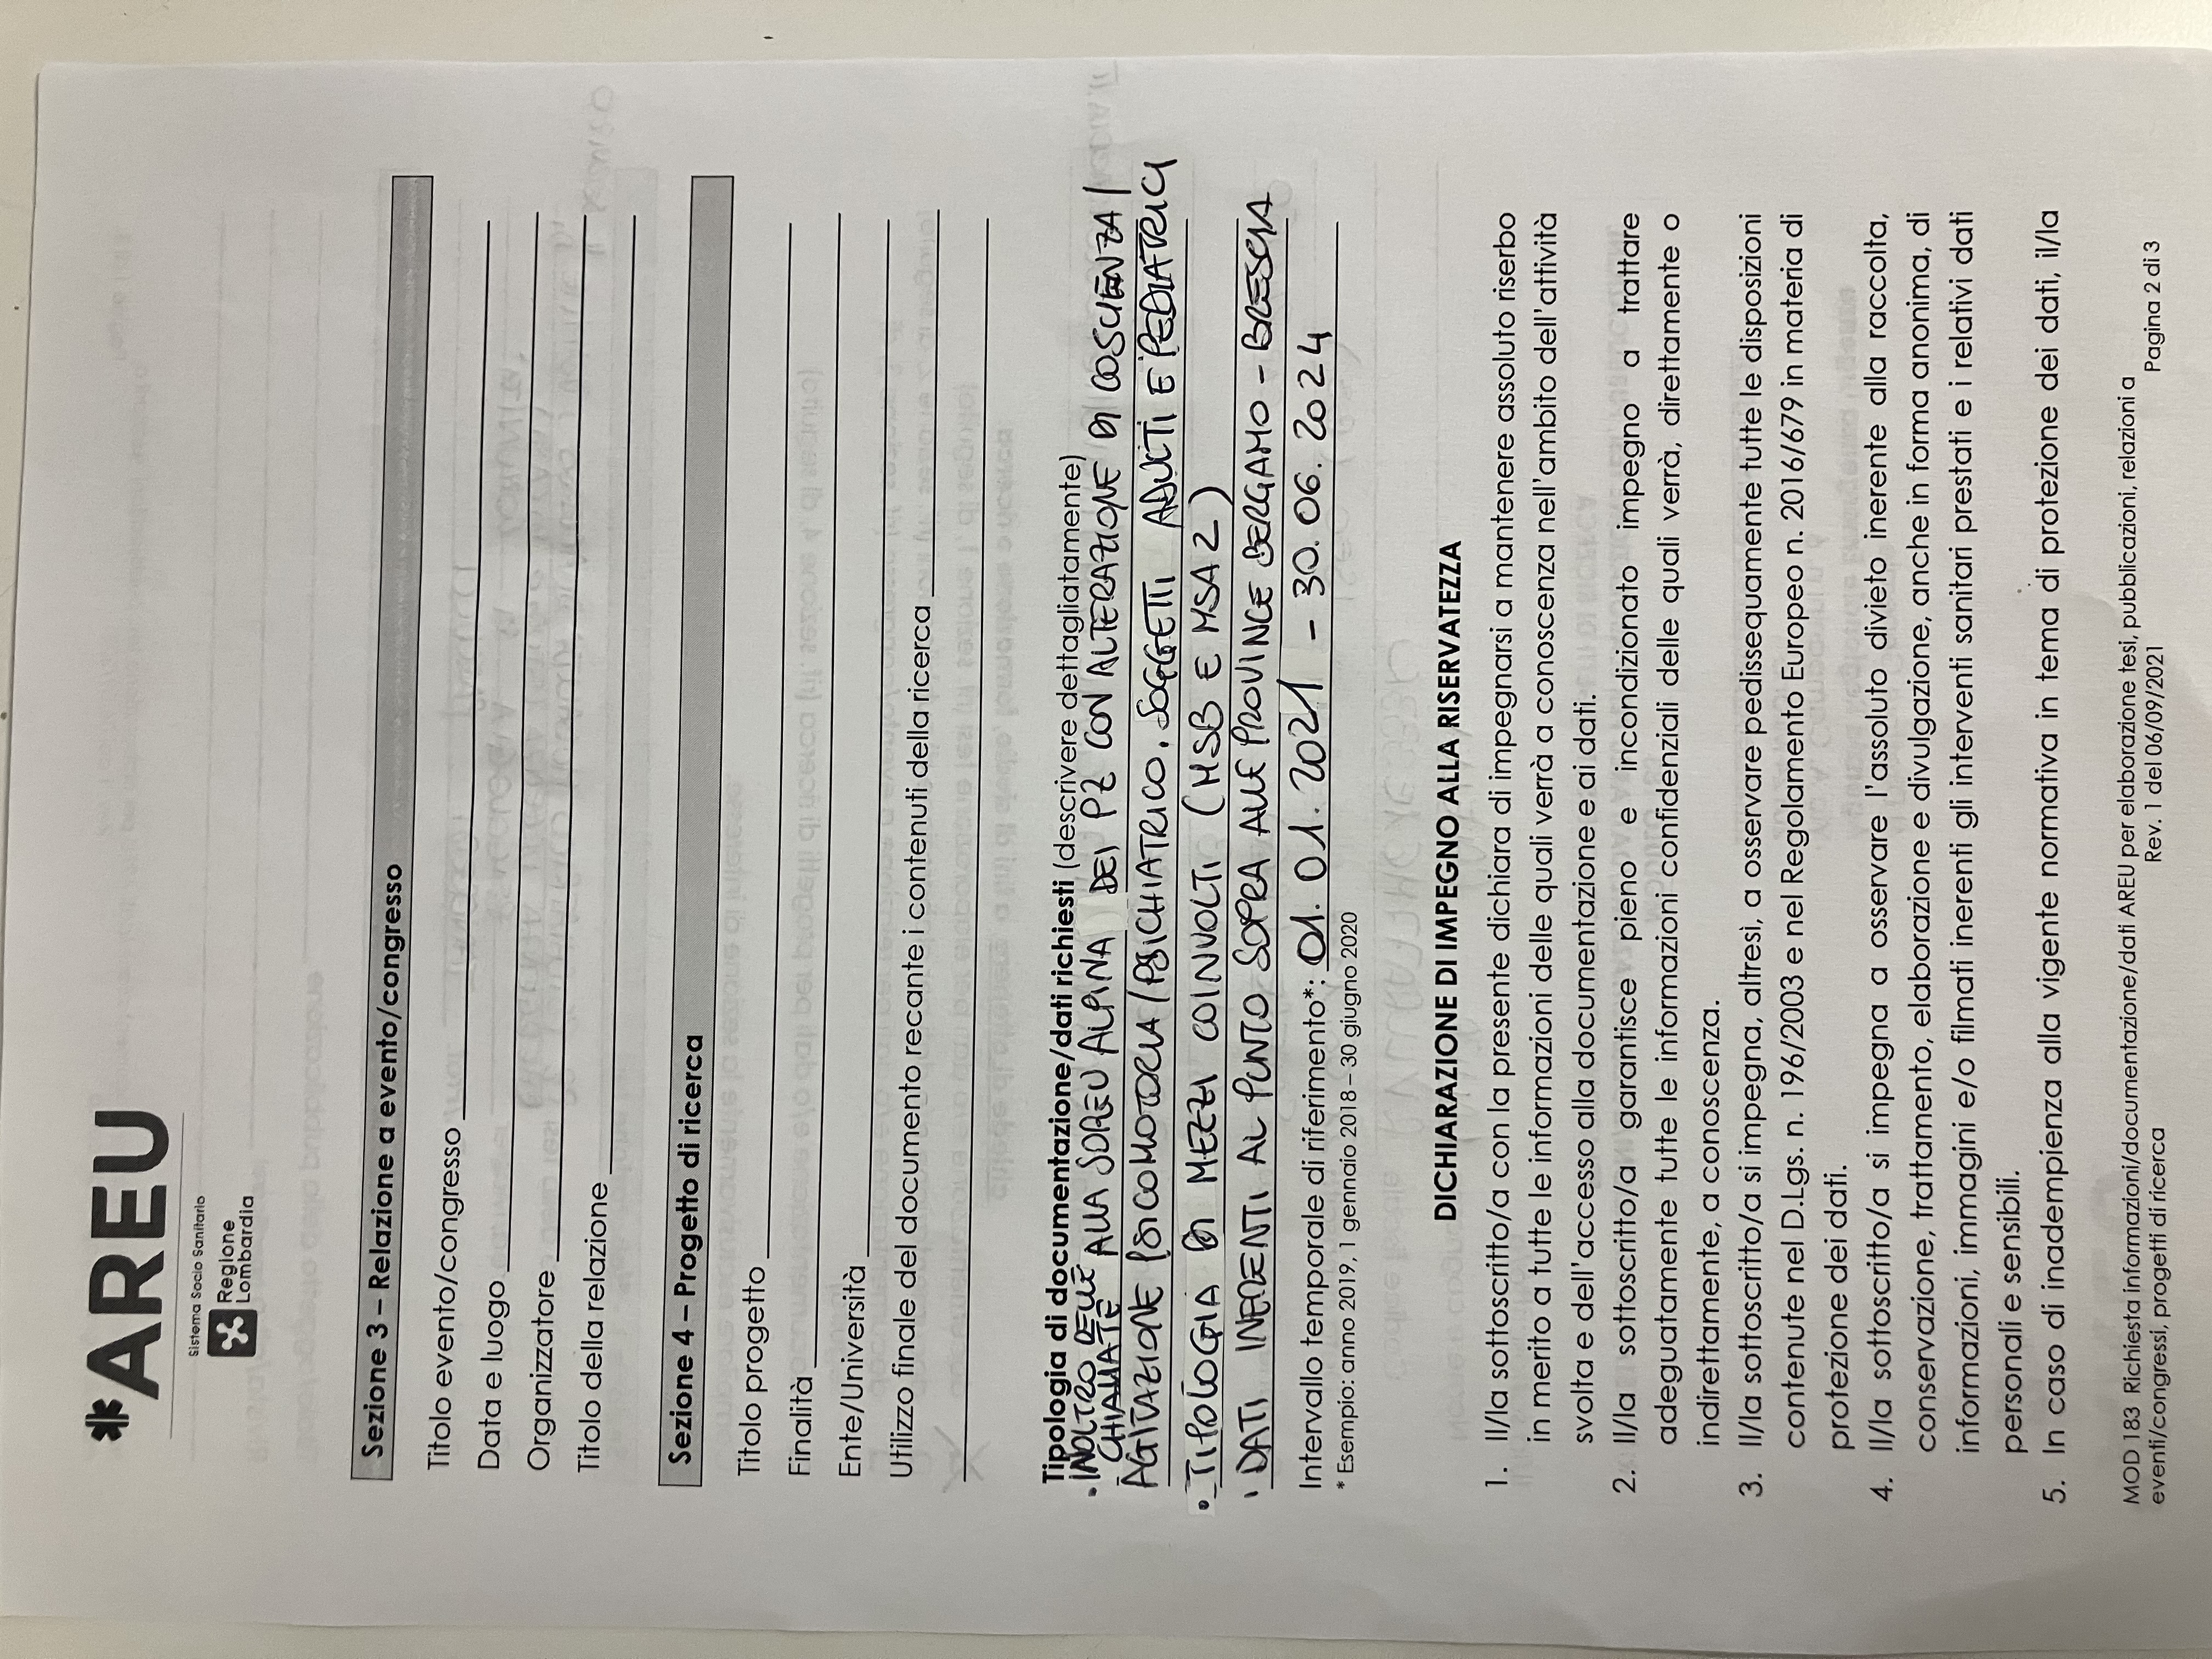 *AREU
Sistema Socio Sanitario
Regione
Lombardia
Sezione 3 – Relazione a evento/congresso
Titolo evento/congresso
Data e luogo
Organizzatore
Titolo della relazione
Sezione 4 – Progetto di ricerca
Titolo progetto
Finalità
Ente/Università
Utilizzo finale del documento recante i contenuti della ricerca
Tipologia di documentazione/dati richiesti (descrivere dettagliatamente)
• INOLTRO DELLE CHIAMATE ALLA SOREU ALPINA DEI PZ CON ALTERAZIONE DI COSCIENZA /
AGITAZIONE PSICOMOTORIA / PSICHIATRICO. SOGGETTI ADULTI E PEDIATRICI
• TIPOLOGIA DI MEZZI COINVOLTI (MSB E MSA2)
• DATI INERENTI AL PUNTO SOPRA ALLE PROVINCE BERGAMO - BRESCIA
Intervallo temporale di riferimento*: 01.01.2021 - 30.06.2024
* Esempio: anno 2019, 1 gennaio 2018 – 30 giugno 2020
DICHIARAZIONE DI IMPEGNO ALLA RISERVATEZZA
1. Il/la sottoscritto/a con la presente dichiara di impegnarsi a mantenere assoluto riserbo
in merito a tutte le informazioni delle quali verrà a conoscenza nell'ambito dell'attività
svolta e dell'accesso alla documentazione e ai dati.
2. Il/la sottoscritto/a garantisce pieno e incondizionato impegno a trattare
adeguatamente tutte le informazioni confidenziali delle quali verrà, direttamente o
indirettamente, a conoscenza.
3. Il/la sottoscritto/a si impegna, altresì, a osservare pedissequamente tutte le disposizioni
contenute nel D.Lgs. n. 196/2003 e nel Regolamento Europeo n. 2016/679 in materia di
protezione dei dati.
4. Il/la sottoscritto/a si impegna a osservare l'assoluto divieto inerente alla raccolta,
conservazione, trattamento, elaborazione e divulgazione, anche in forma anonima, di
informazioni, immagini e/o filmati inerenti gli interventi sanitari prestati e i relativi dati
personali e sensibili.
5. In caso di inadempienza alla vigente normativa in tema di protezione dei dati, il/la
MOD 183 Richiesta informazioni/documentazione/dati AREU per elaborazione tesi, pubblicazioni, relazioni a
eventi/congressi, progetti di ricerca Rev. 1 del 06/09/2021 Pagina 2 di 3